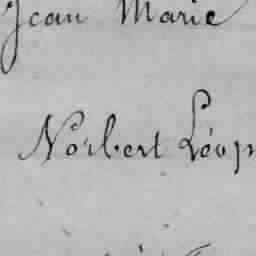 Jean Marie
Norbert Léop